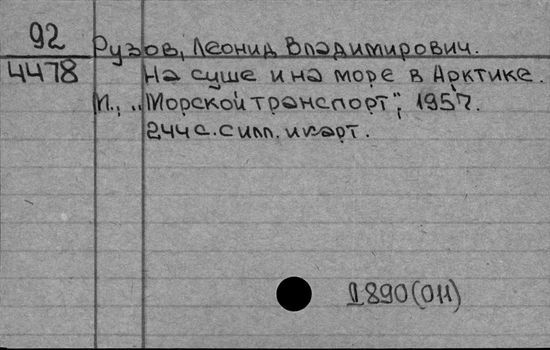 92
4478
Рузов, Леонид Владимирович.
На суше и на море в Арктике.
М., „Морской транспорт", 1957.
244 с. с илл. и карт.
I890(011)